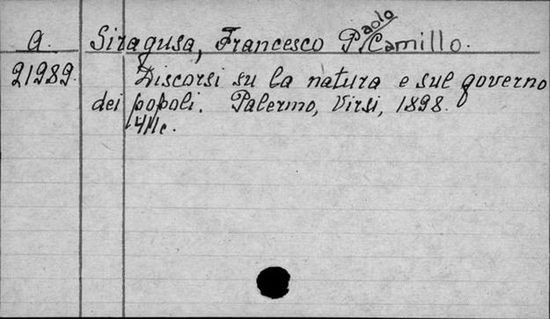 a. Siragusa, Francesco Paolo Camillo.
21989. Discorsi su la natura e sul governo
dei popoli. Palermo, Virsi, 1898.